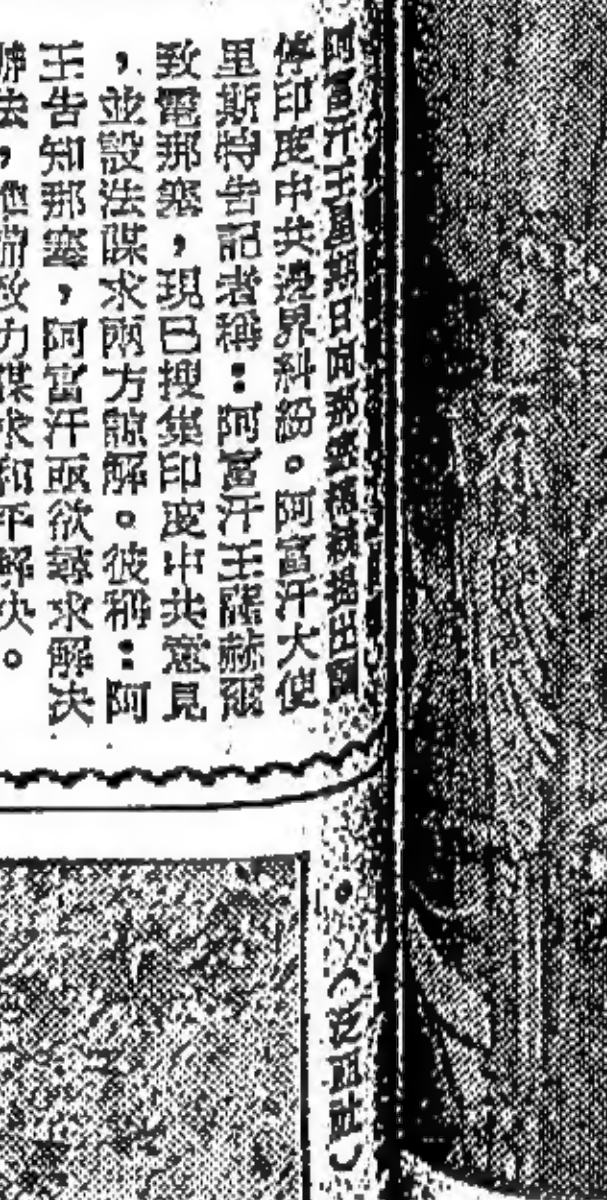 阿富汗王星期日向那塞稱願提出調
停印度中共邊界糾紛。阿富汗大使
里斯特告記者稱：阿富汗王薩赫爾
致電那塞，現已搜集印度中共意見
，並設法謀求兩方諒解。彼稱：阿
王告知那塞，阿富汗亟欲尋求解決
辦法，極需致力謀求和平解決。
（泛亞社）